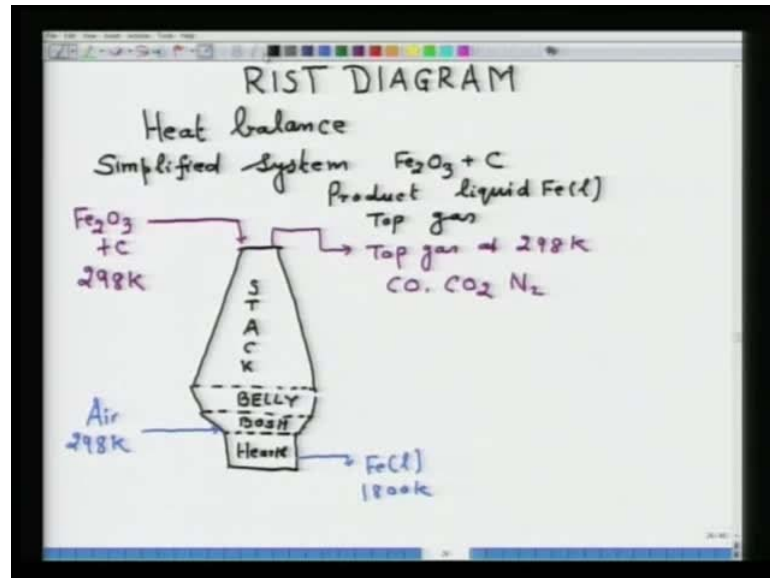 RIST DIAGRAM
Heat balance
Simplified System Fe2O3 + C
Product liquid Fe(l)
Top gas
Fe2O3
+C
298K
Top gas at 298K
CO. CO2 N2
STACK
BELLY
BOSH
Hearth
Air
298K
Fe(l)
1800K